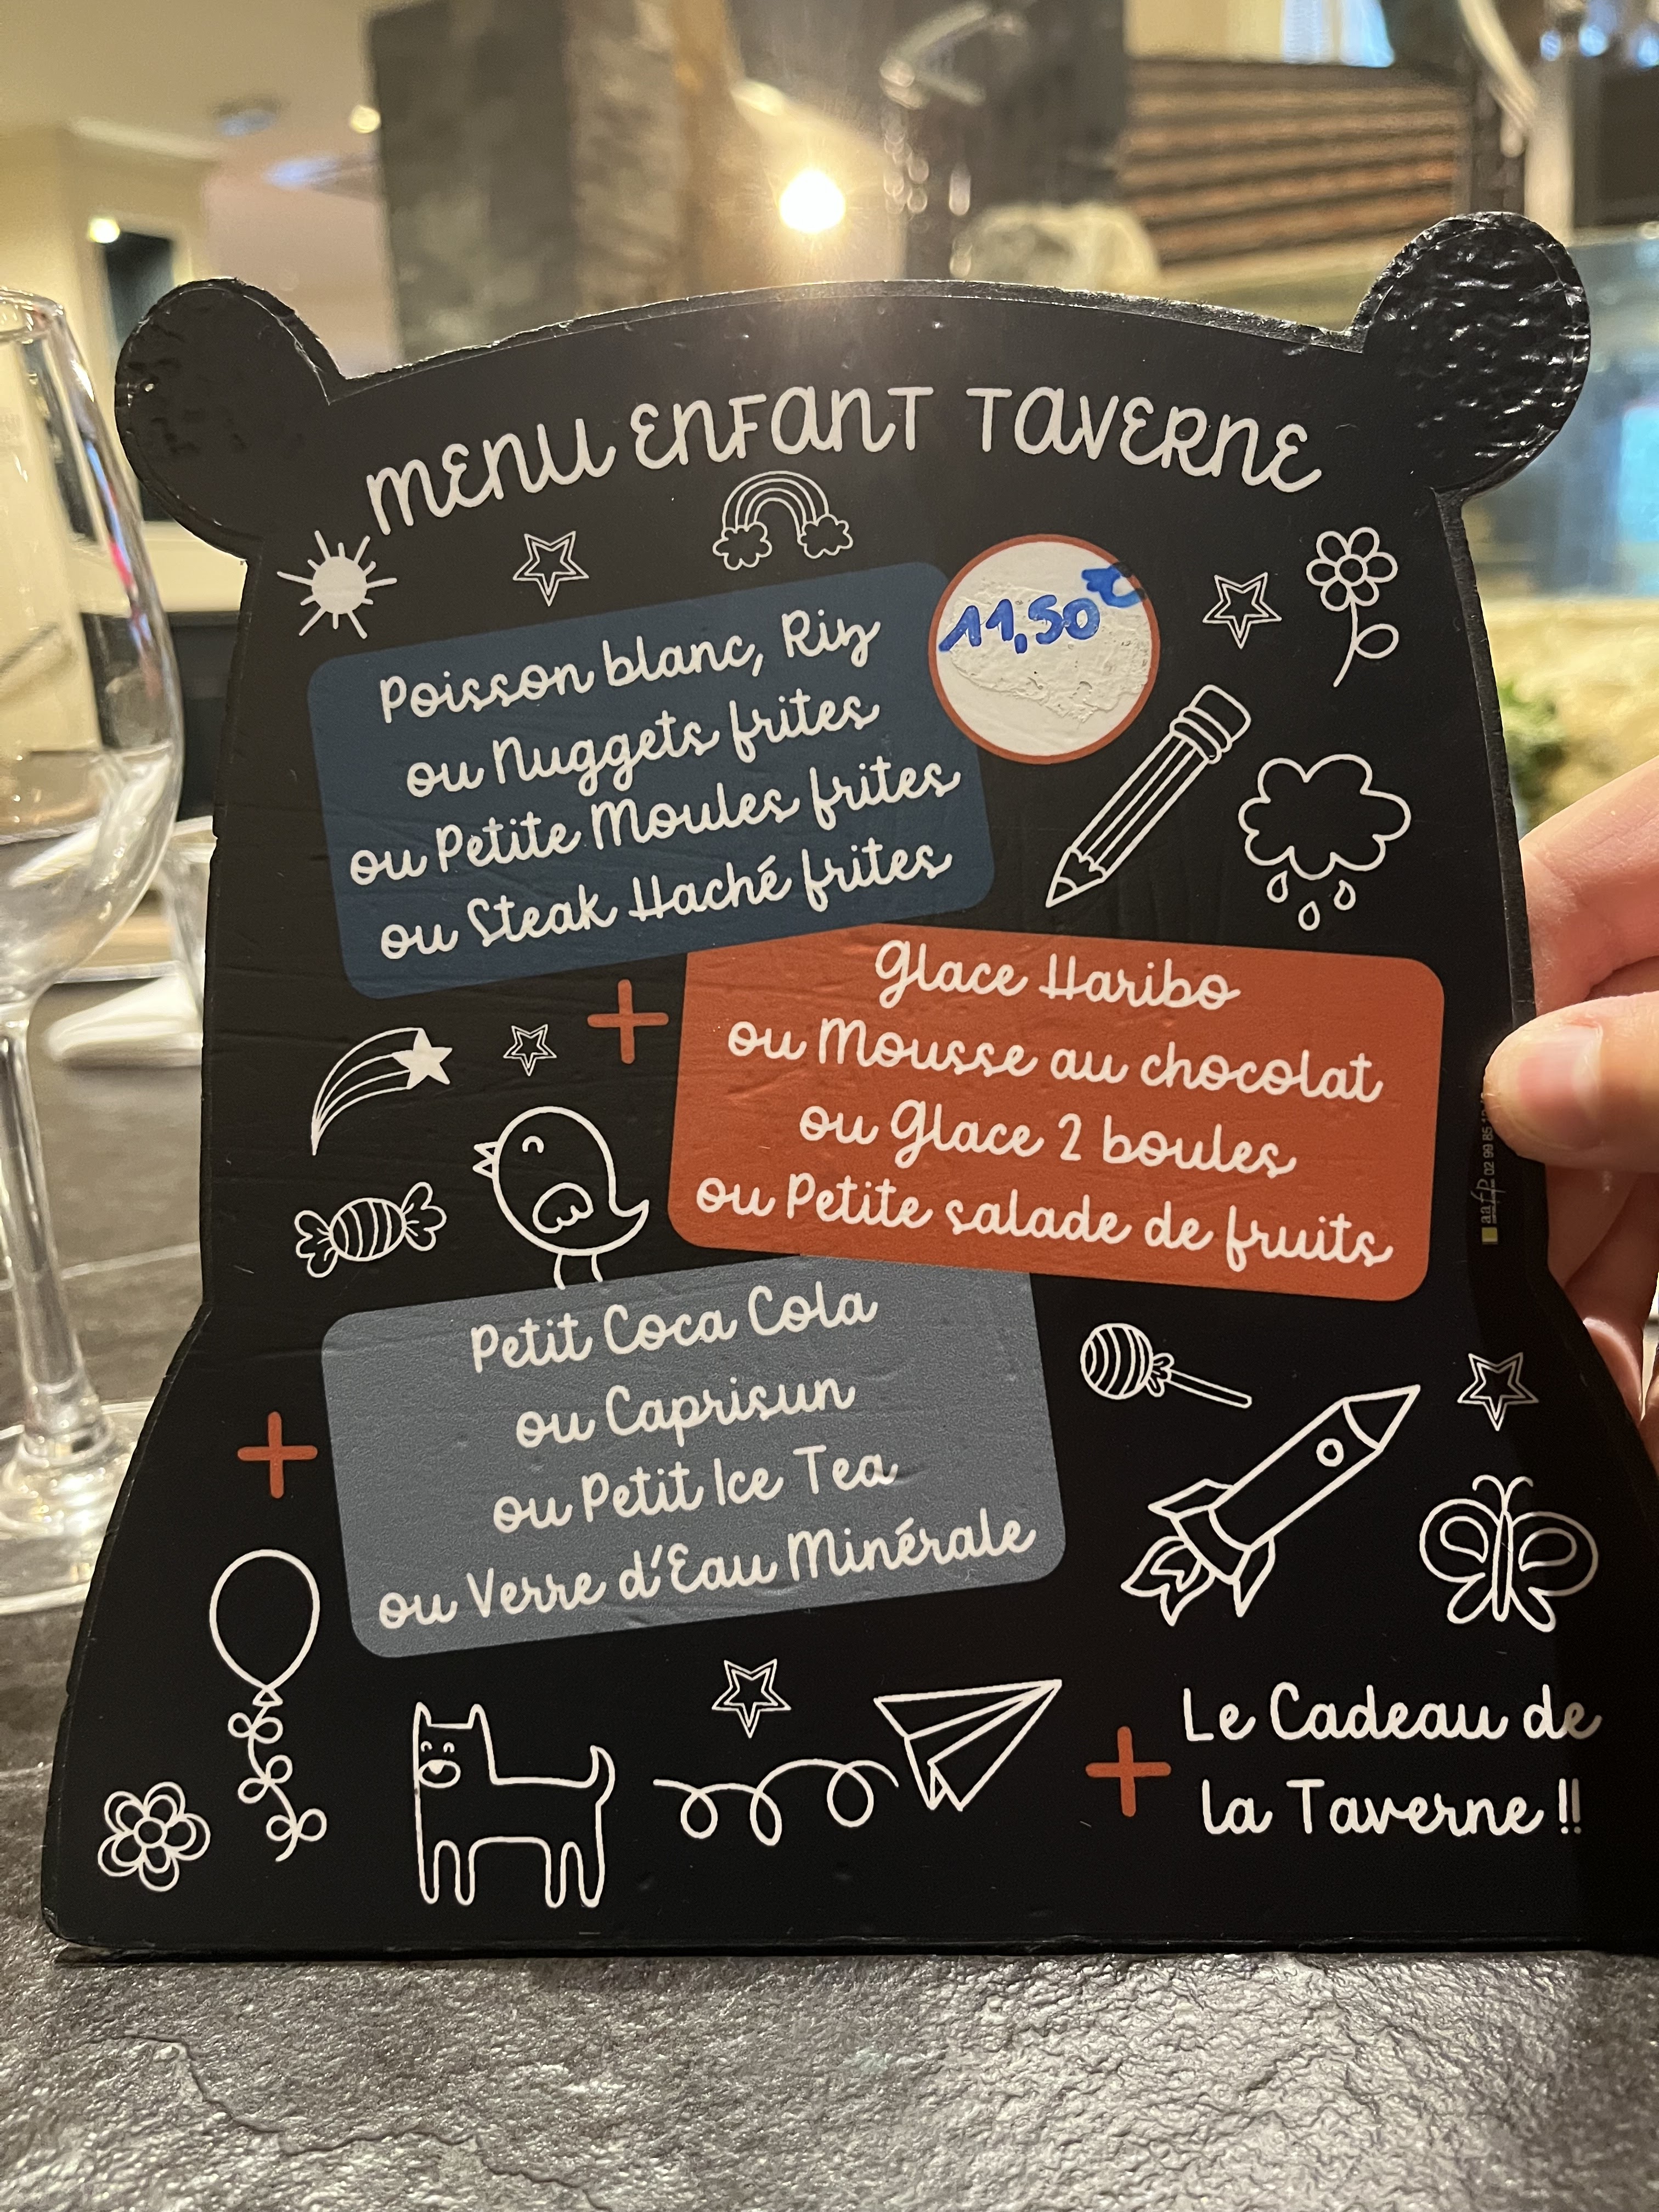 MENU ENFANT TAVERNE
11,50€
Poisson blanc, Riz
ou Nuggets frites
ou Petite Moules frites
ou Steak Haché frites
+
Glace Haribo
ou Mousse au chocolat
ou Glace 2 boules
ou Petite salade de fruits
+
Petit Coca Cola
ou Caprisun
ou Petit Ice Tea
ou Verre d'Eau Minérale
+
Le Cadeau de
la Taverne !!
aafp 02 99 85